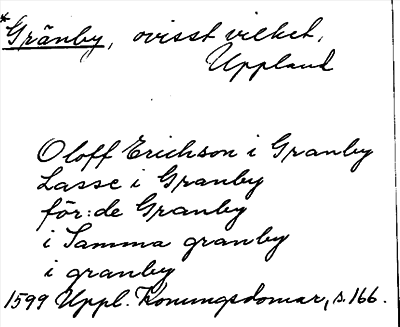 *Gränby, ovisst vilket,
Uppland
Oloff Erichson i Granby
Lasse i Granby
för:de Granby
i Samma granby
i granby
1599 Uppl. Konungsdomar, s. 166.